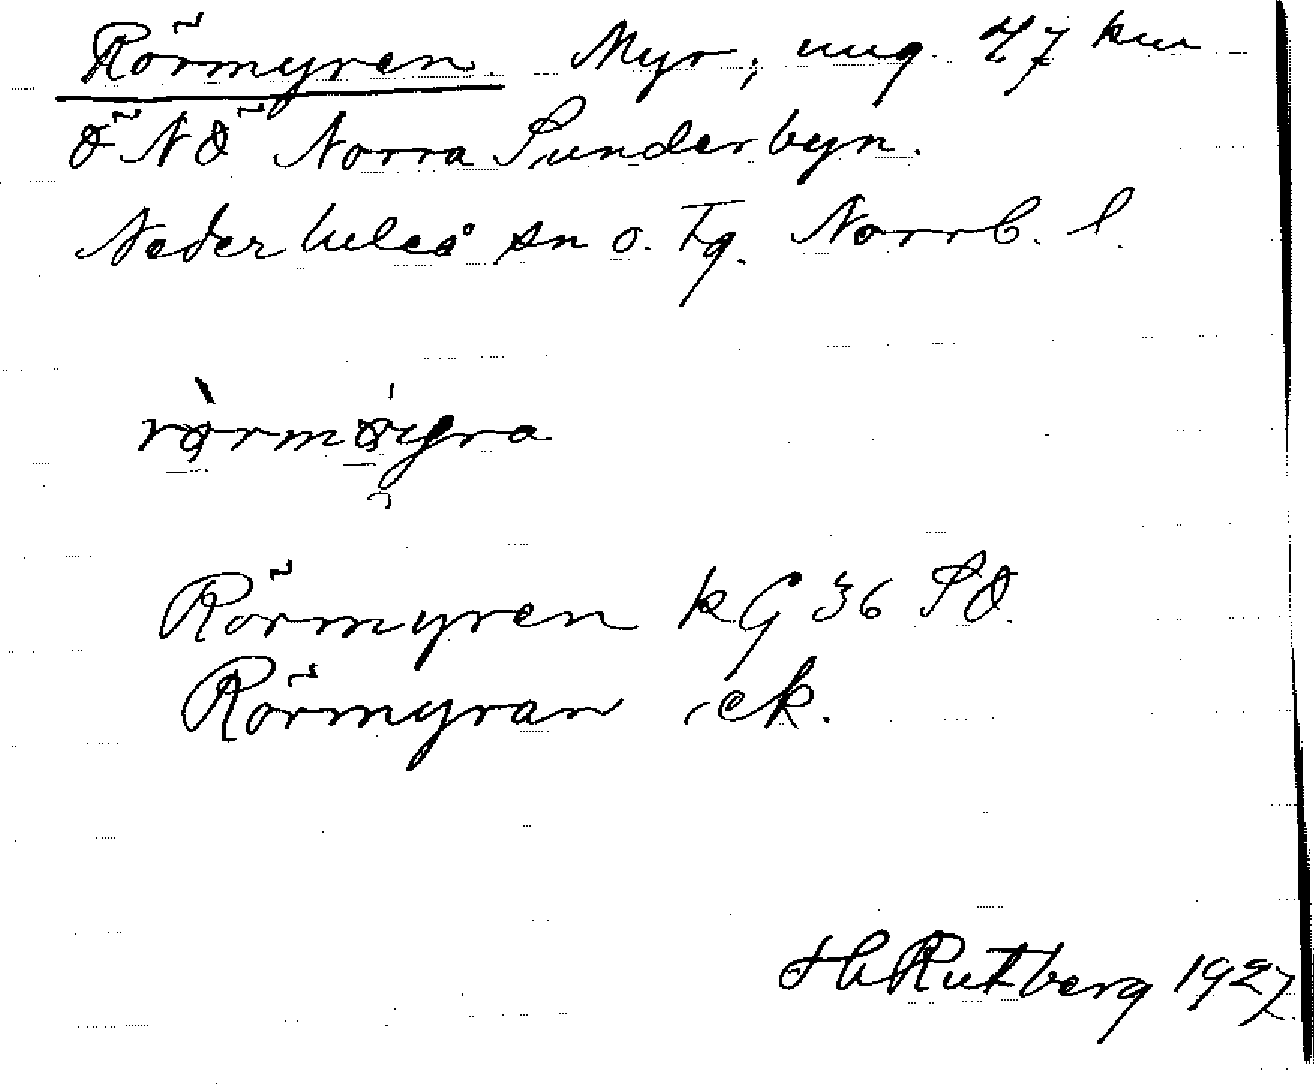 Rörmyren. Myr, ung. 4,7 km
ÖNÖ Norra Sunderbyn.
Nederluleå sn o. tg. Norrb. l.
Rörmyren kG 36 SO.
Rörmyran ek.
H Rutberg 1927